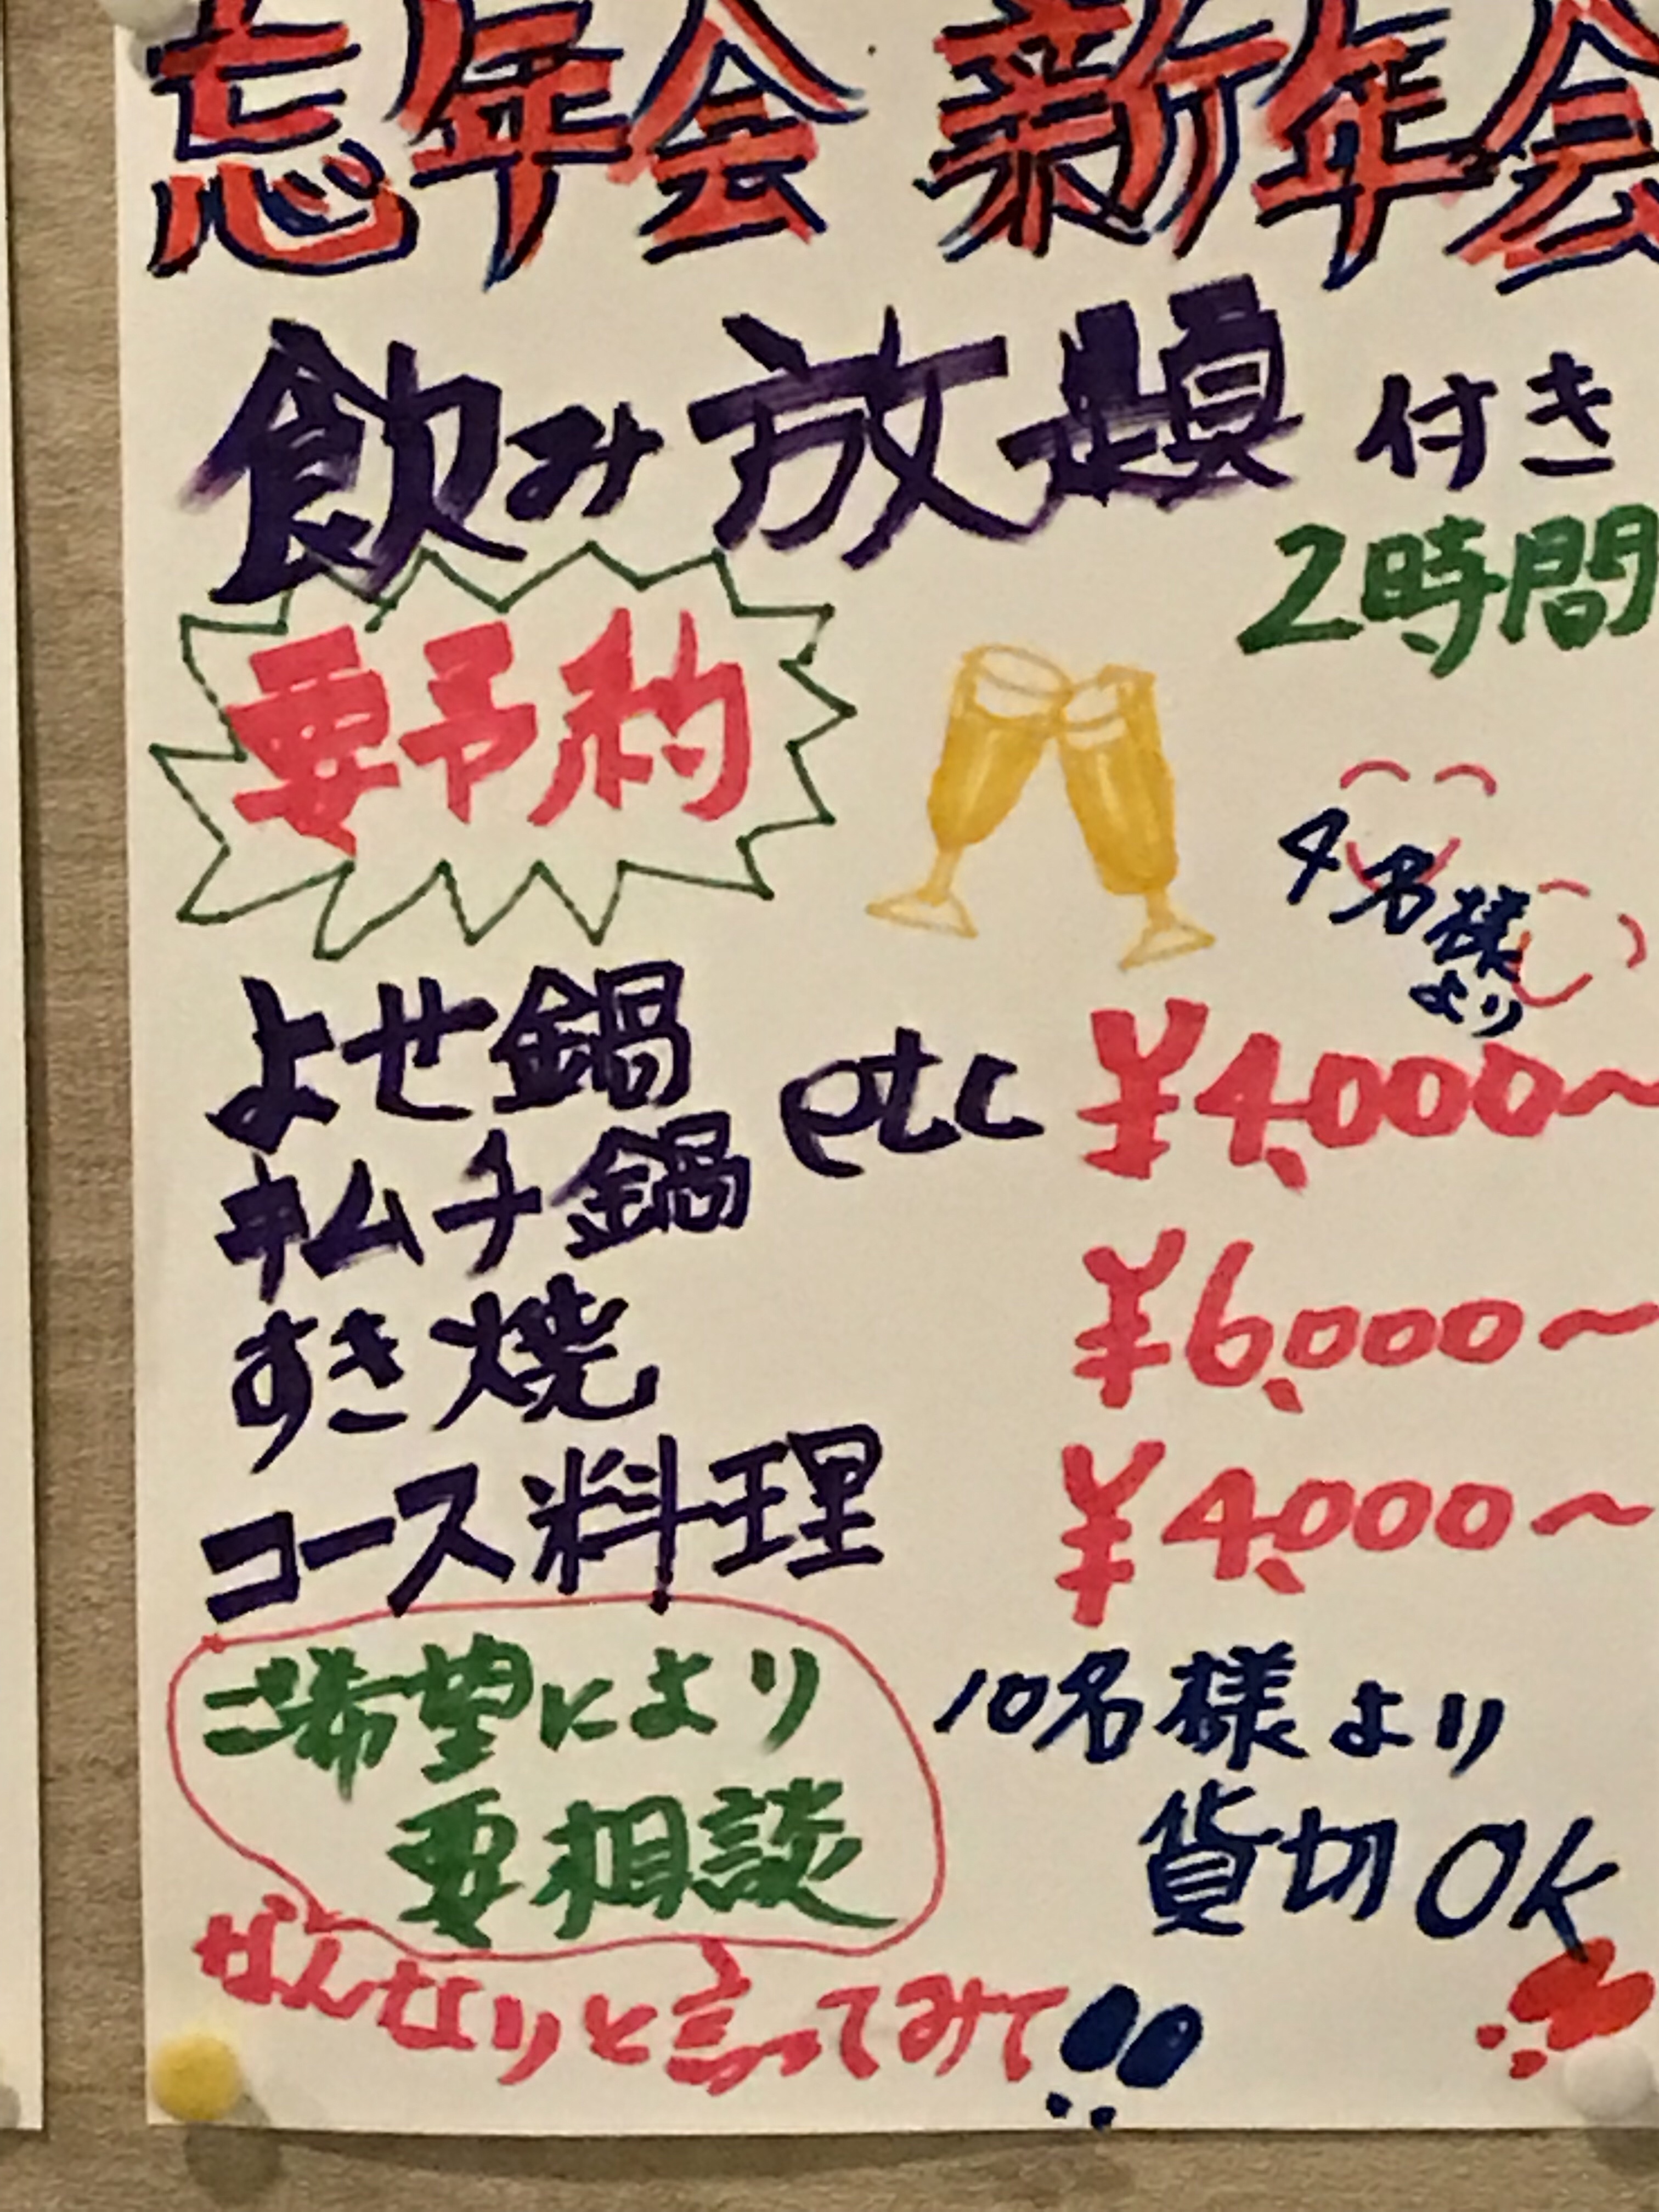 忘年会 新年会
飲み放題 付き
2時間
要予約
4名様
より
よせ鍋 etc ¥4,000〜
キムチ鍋
すき焼 ¥6,000〜
コース料理 ¥4,000〜
ご希望により
要相談
10名様より
貸切OK
なんなりと言ってみて!!